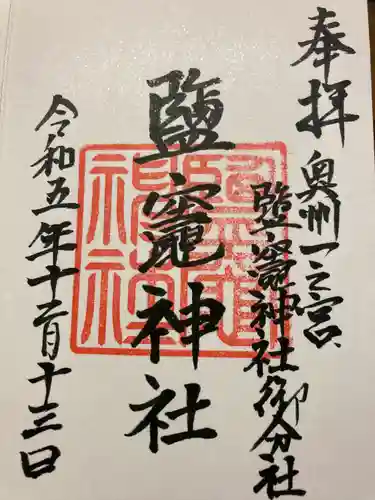 奉拝
奥州一之宮
鹽竈神社御分社
鹽竈神社
令和五年十二月十三日